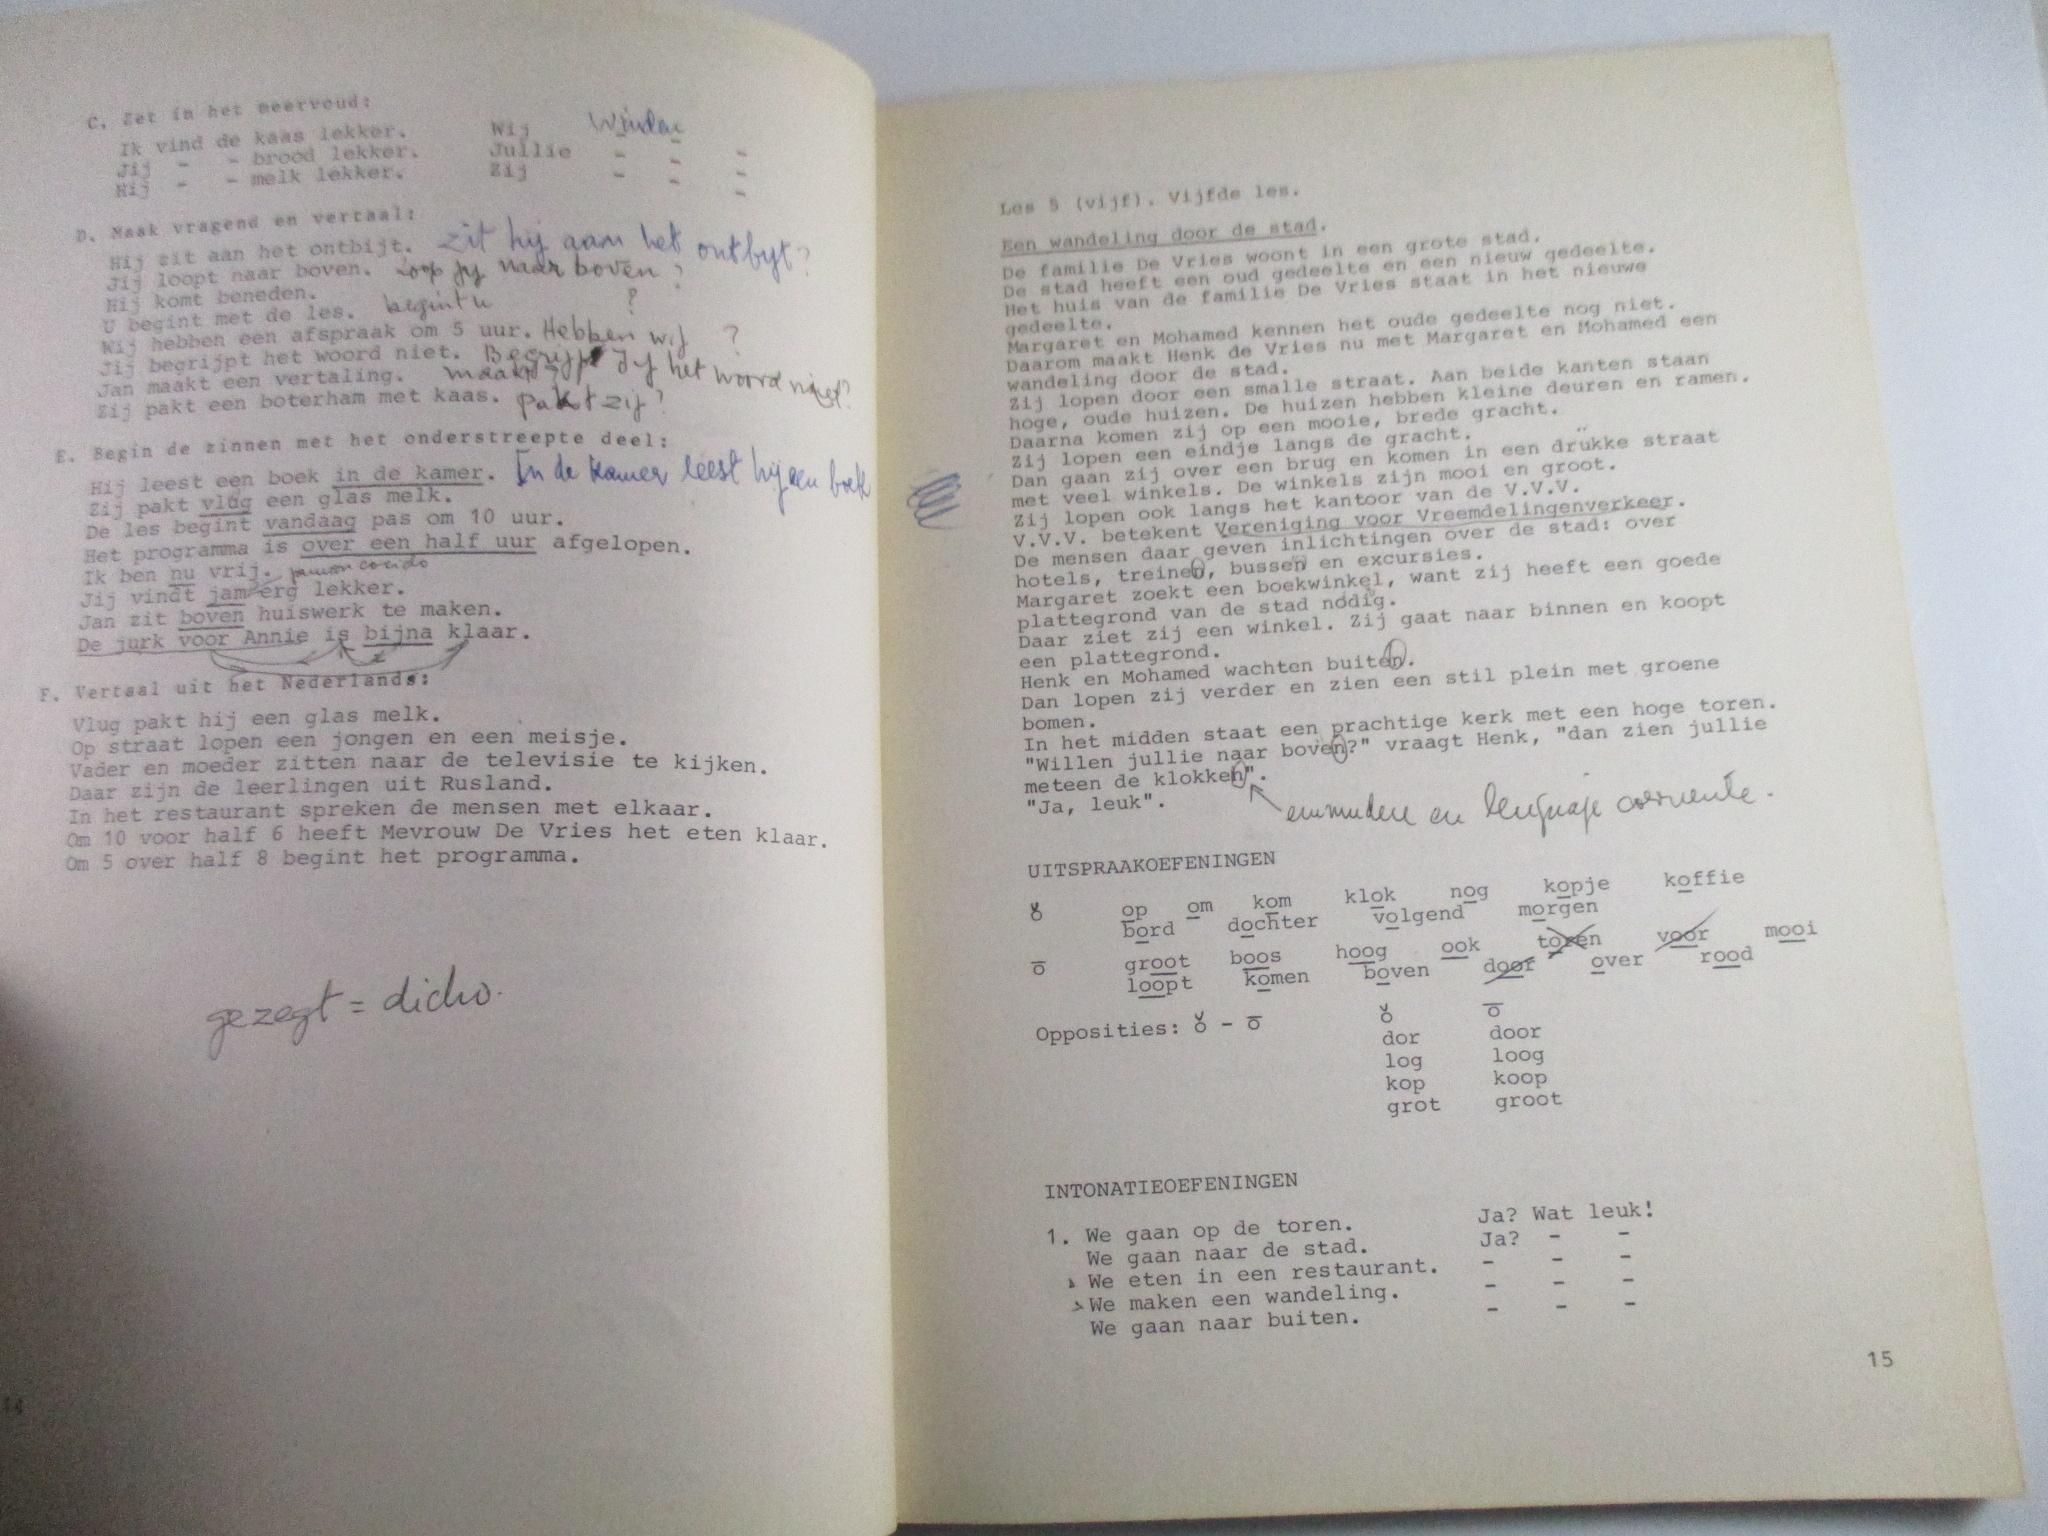 C. Zet in het meervoud:
Ik vind de kaas lekker. Wij Winden - -
Jij - - brood lekker. Jullie - - -
Hij - - melk lekker. Zij - - -
D. Maak vragend en vertaal:
Hij zit aan het ontbijt. Zit hij aan het ontbyt?
Jij loopt naar boven. Loop jy naar boven?
Hij komt beneden.
U begint met de les. begint u ?
Wij hebben een afspraak om 5 uur. Hebben wij ?
Jij begrijpt het woord niet. Begrijp Jy het woord niet?
Jan maakt een vertaling. maakt
Zij pakt een boterham met kaas. pakt zij?
E. Begin de zinnen met het onderstreepte deel:
Hij leest een boek in de kamer. In de kamer leest hij een boek
Zij pakt vlug een glas melk.
De les begint vandaag pas om 10 uur.
Het programma is over een half uur afgelopen.
Ik ben nu vrij.
Jij vindt jam erg lekker.
Jan zit boven huiswerk te maken.
De jurk voor Annie is bijna klaar.
F. Vertaal uit het Nederlands:
Vlug pakt hij een glas melk.
Op straat lopen een jongen en een meisje.
Vader en moeder zitten naar de televisie te kijken.
Daar zijn de leerlingen uit Rusland.
In het restaurant spreken de mensen met elkaar.
Om 10 voor half 6 heeft Mevrouw De Vries het eten klaar.
Om 5 over half 8 begint het programma.
gezegt = dicho.
14
Les 5 (vijf). Vijfde les.
Een wandeling door de stad.
De familie De Vries woont in een grote stad.
De stad heeft een oud gedeelte en een nieuw gedeelte.
Het huis van de familie De Vries staat in het nieuwe
gedeelte.
Margaret en Mohamed kennen het oude gedeelte nog niet.
Daarom maakt Henk de Vries nu met Margaret en Mohamed een
wandeling door de stad.
Zij lopen door een smalle straat. Aan beide kanten staan
hoge, oude huizen. De huizen hebben kleine deuren en ramen.
Daarna komen zij op een mooie, brede gracht.
Zij lopen een eindje langs de gracht.
Dan gaan zij over een brug en komen in een drükke straat
met veel winkels. De winkels zijn mooi en groot.
Zij lopen ook langs het kantoor van de V.V.V.
V.V.V. betekent Vereniging voor Vreemdelingenverkeer.
De mensen daar geven inlichtingen over de stad: over
hotels, treinen, bussen en excursies.
Margaret zoekt een boekwinkel, want zij heeft een goede
plattegrond van de stad nodig.
Daar ziet zij een winkel. Zij gaat naar binnen en koopt
een plattegrond.
Henk en Mohamed wachten buiten.
Dan lopen zij verder en zien een stil plein met groene
bomen.
In het midden staat een prachtige kerk met een hoge toren.
"Willen jullie naar boven?" vraagt Henk, "dan zien jullie
meteen de klokken".
"Ja, leuk".
enmudece en lenguaje corriente.
UITSPRAAKOEFENINGEN
ǒ op om kom klok nog kopje koffie
bord dochter volgend morgen
ō groot boos hoog ook toren voor mooi
loopt komen boven door over rood
Opposities: ǒ - ō ǒ ō
dor door
log loog
kop koop
grot groot
INTONATIEOEFENINGEN
1. We gaan op de toren. Ja? Wat leuk!
We gaan naar de stad. Ja? - -
We eten in een restaurant. - - -
We maken een wandeling. - - -
We gaan naar buiten. - - -
15